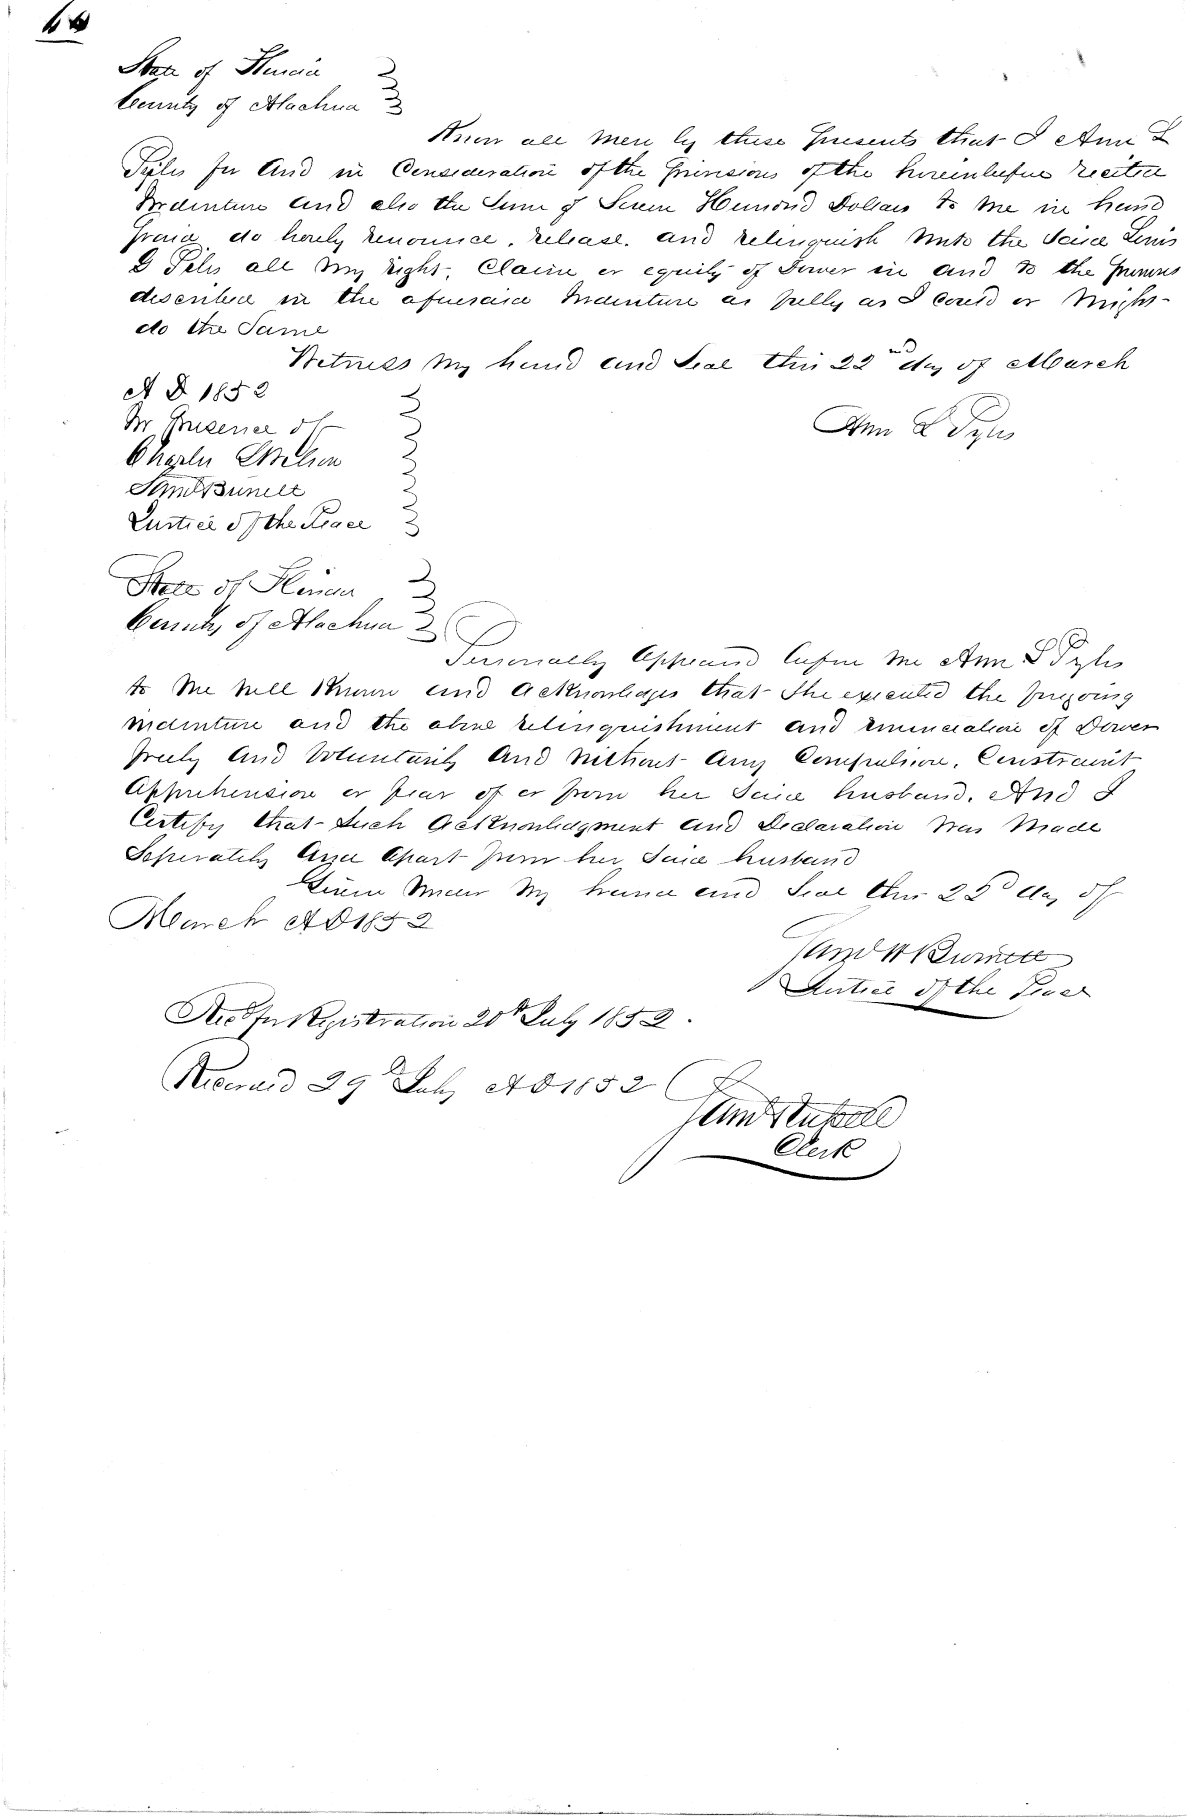 State of Florida
County of Alachua
Know all men by these presents that I Ann L
Pyles for and in Consideration of the provisions of the hereinbefore recited
Indenture and also the Sum of Seven Hundred Dollars to me in hand
paid do hereby renounce, release. and relinquish unto the Said Lewis
G Pyles all my right, Claim or equity of Dower in and to the premises
described in the aforesaid Indenture as fully as I could or might
do the Same
Witness my hand and Seal this 22nd day of March
A D 1852
In Presence of
Ann L Pyles
Charles Wilson
Saml Burnett
Justice of the Peace
State of Florida
County of Alachua
Personally Appeared before me Ann L Pyles
to me well Known and acknowledges that She executed the foregoing
indenture and the above relinquishment and renunciation of Dower
freely and Voluntarily and without any Compulsion, Constraint
Apprehension or fear of or from her Said husband. And I
Certify that Such acknowledgment and Declaration was made
Seperately and apart from her Said husband
Given under my hand and Seal this 22d day of
March A D 1852
Saml W Burnett
Justice of the Peace
Recd for Registration 20th July 1852.
Recorded 29th July A D 1852
Saml Russell
Clerk